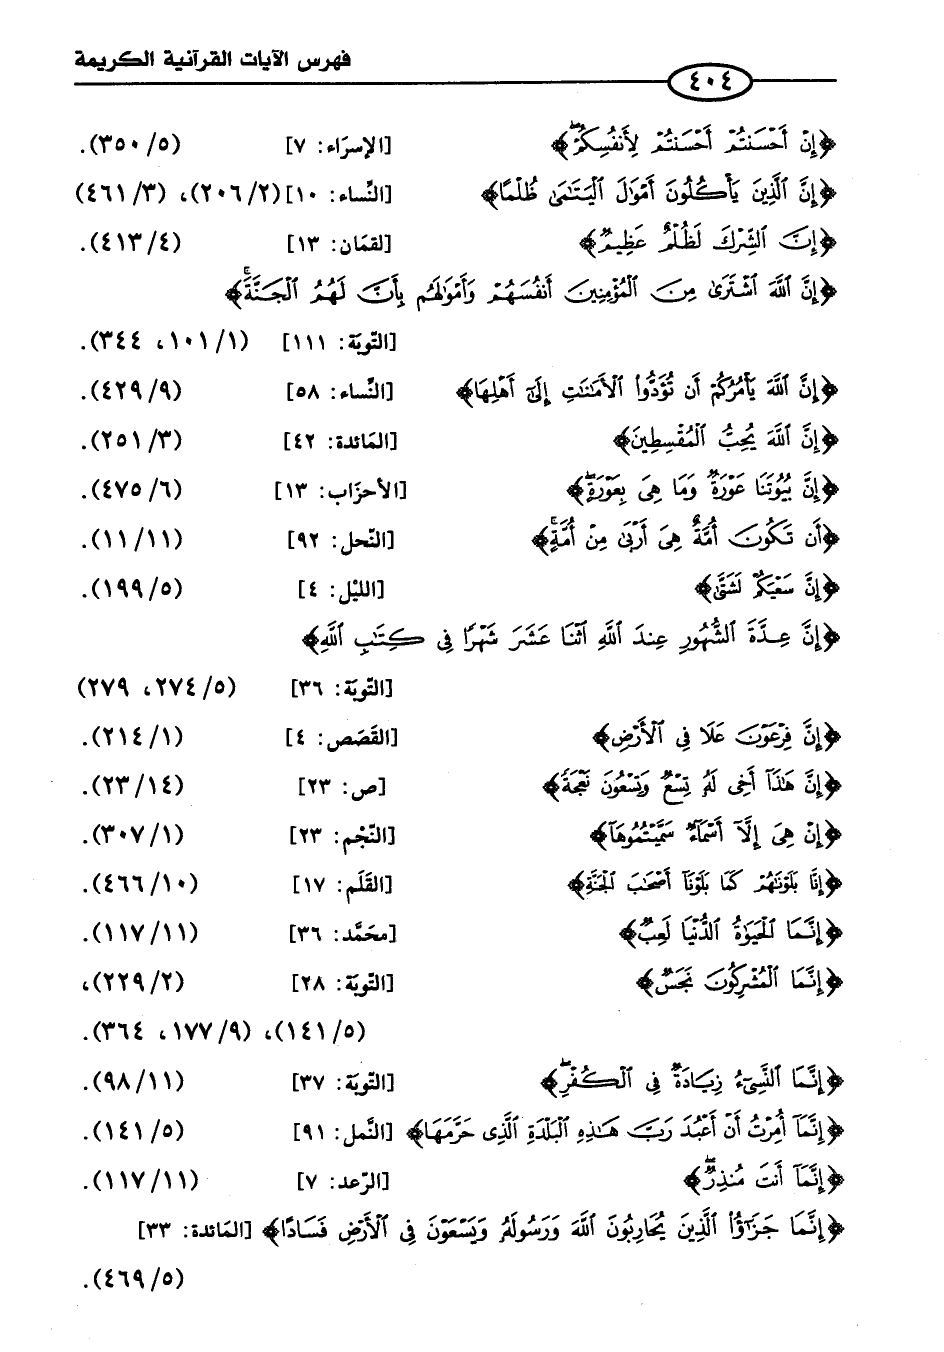 فهرس الآيات القرآنية الكريمة
٤٠٤
﴿إِنْ أَحْسَنتُمْ أَحْسَنتُمْ لِأَنفُسِكُمْ ۖ﴾ [الإسرَاء: ٧] (٣٥٠/٥).
﴿إِنَّ الَّذِينَ يَأْكُلُونَ أَمْوَالَ الْيَتَامَىٰ ظُلْمًا﴾ [النِّساء: ١٠] (٢٠٦/٢)، (٤٦١/٣)
﴿إِنَّ الشِّرْكَ لَظُلْمٌ عَظِيمٌ﴾ [لقمَان: ١٣] (٤١٣/٤).
﴿إِنَّ اللَّهَ اشْتَرَىٰ مِنَ الْمُؤْمِنِينَ أَنفُسَهُمْ وَأَمْوَالَهُم بِأَنَّ لَهُمُ الْجَنَّةَ ۚ﴾
[التّوبَة: ١١١] (١٠١/١، ٣٤٤).
﴿إِنَّ اللَّهَ يَأْمُرُكُمْ أَن تُؤَدُّوا الْأَمَانَاتِ إِلَىٰ أَهْلِهَا﴾ [النِّساء: ٥٨] (٤٢٩/٩).
﴿إِنَّ اللَّهَ يُحِبُّ الْمُقْسِطِينَ﴾ [المَائدة: ٤٢] (٢٥١/٣).
﴿إِنَّ بُيُوتَنَا عَوْرَةٌ وَمَا هِيَ بِعَوْرَةٍ ۖ﴾ [الأحزَاب: ١٣] (٤٧٥/٦).
﴿أَن تَكُونَ أُمَّةٌ هِيَ أَرْبَىٰ مِنْ أُمَّةٍ ۚ﴾ [النّحل: ٩٢] (١١/١١).
﴿إِنَّ سَعْيَكُمْ لَشَتَّىٰ﴾ [الليْل: ٤] (١٩٩/٥).
﴿إِنَّ عِدَّةَ الشُّهُورِ عِندَ اللَّهِ اثْنَا عَشَرَ شَهْرًا فِي كِتَابِ اللَّهِ﴾
[التّوبَة: ٣٦] (٢٧٤/٥، ٢٧٩)
﴿إِنَّ فِرْعَوْنَ عَلَا فِي الْأَرْضِ﴾ [القَصَص: ٤] (٢١٤/١).
﴿إِنَّ هَٰذَا أَخِي لَهُ تِسْعٌ وَتِسْعُونَ نَعْجَةً﴾ [ص: ٢٣] (٢٣/١٤).
﴿إِنْ هِيَ إِلَّا أَسْمَاءٌ سَمَّيْتُمُوهَا﴾ [النّجْم: ٢٣] (٣٠٧/١).
﴿إِنَّا بَلَوْنَاهُمْ كَمَا بَلَوْنَا أَصْحَابَ الْجَنَّةِ﴾ [القَلَم: ١٧] (٤٦٦/١٠).
﴿إِنَّمَا الْحَيَوٰةُ الدُّنْيَا لَعِبٌ﴾ [محَمَّد: ٣٦] (١١٧/١١).
﴿إِنَّمَا الْمُشْرِكُونَ نَجَسٌ﴾ [التّوبَة: ٢٨] (٢٢٩/٢)،
(١٤١/٥)، (١٧٧/٩، ٣٦٤).
﴿إِنَّمَا النَّسِيءُ زِيَادَةٌ فِي الْكُفْرِ ۖ﴾ [التّوبَة: ٣٧] (٩٨/١١).
﴿إِنَّمَا أُمِرْتُ أَنْ أَعْبُدَ رَبَّ هَٰذِهِ الْبَلْدَةِ الَّذِي حَرَّمَهَا﴾ [النَّمل: ٩١] (١٤١/٥).
﴿إِنَّمَا أَنتَ مُنذِرٌ ۖ﴾ [الرّعد: ٧] (١١٧/١١).
﴿إِنَّمَا جَزَٰؤُا الَّذِينَ يُحَارِبُونَ اللَّهَ وَرَسُولَهُ وَيَسْعَوْنَ فِي الْأَرْضِ فَسَادًا﴾ [المَائدة: ٣٣]
(٤٦٩/٥).